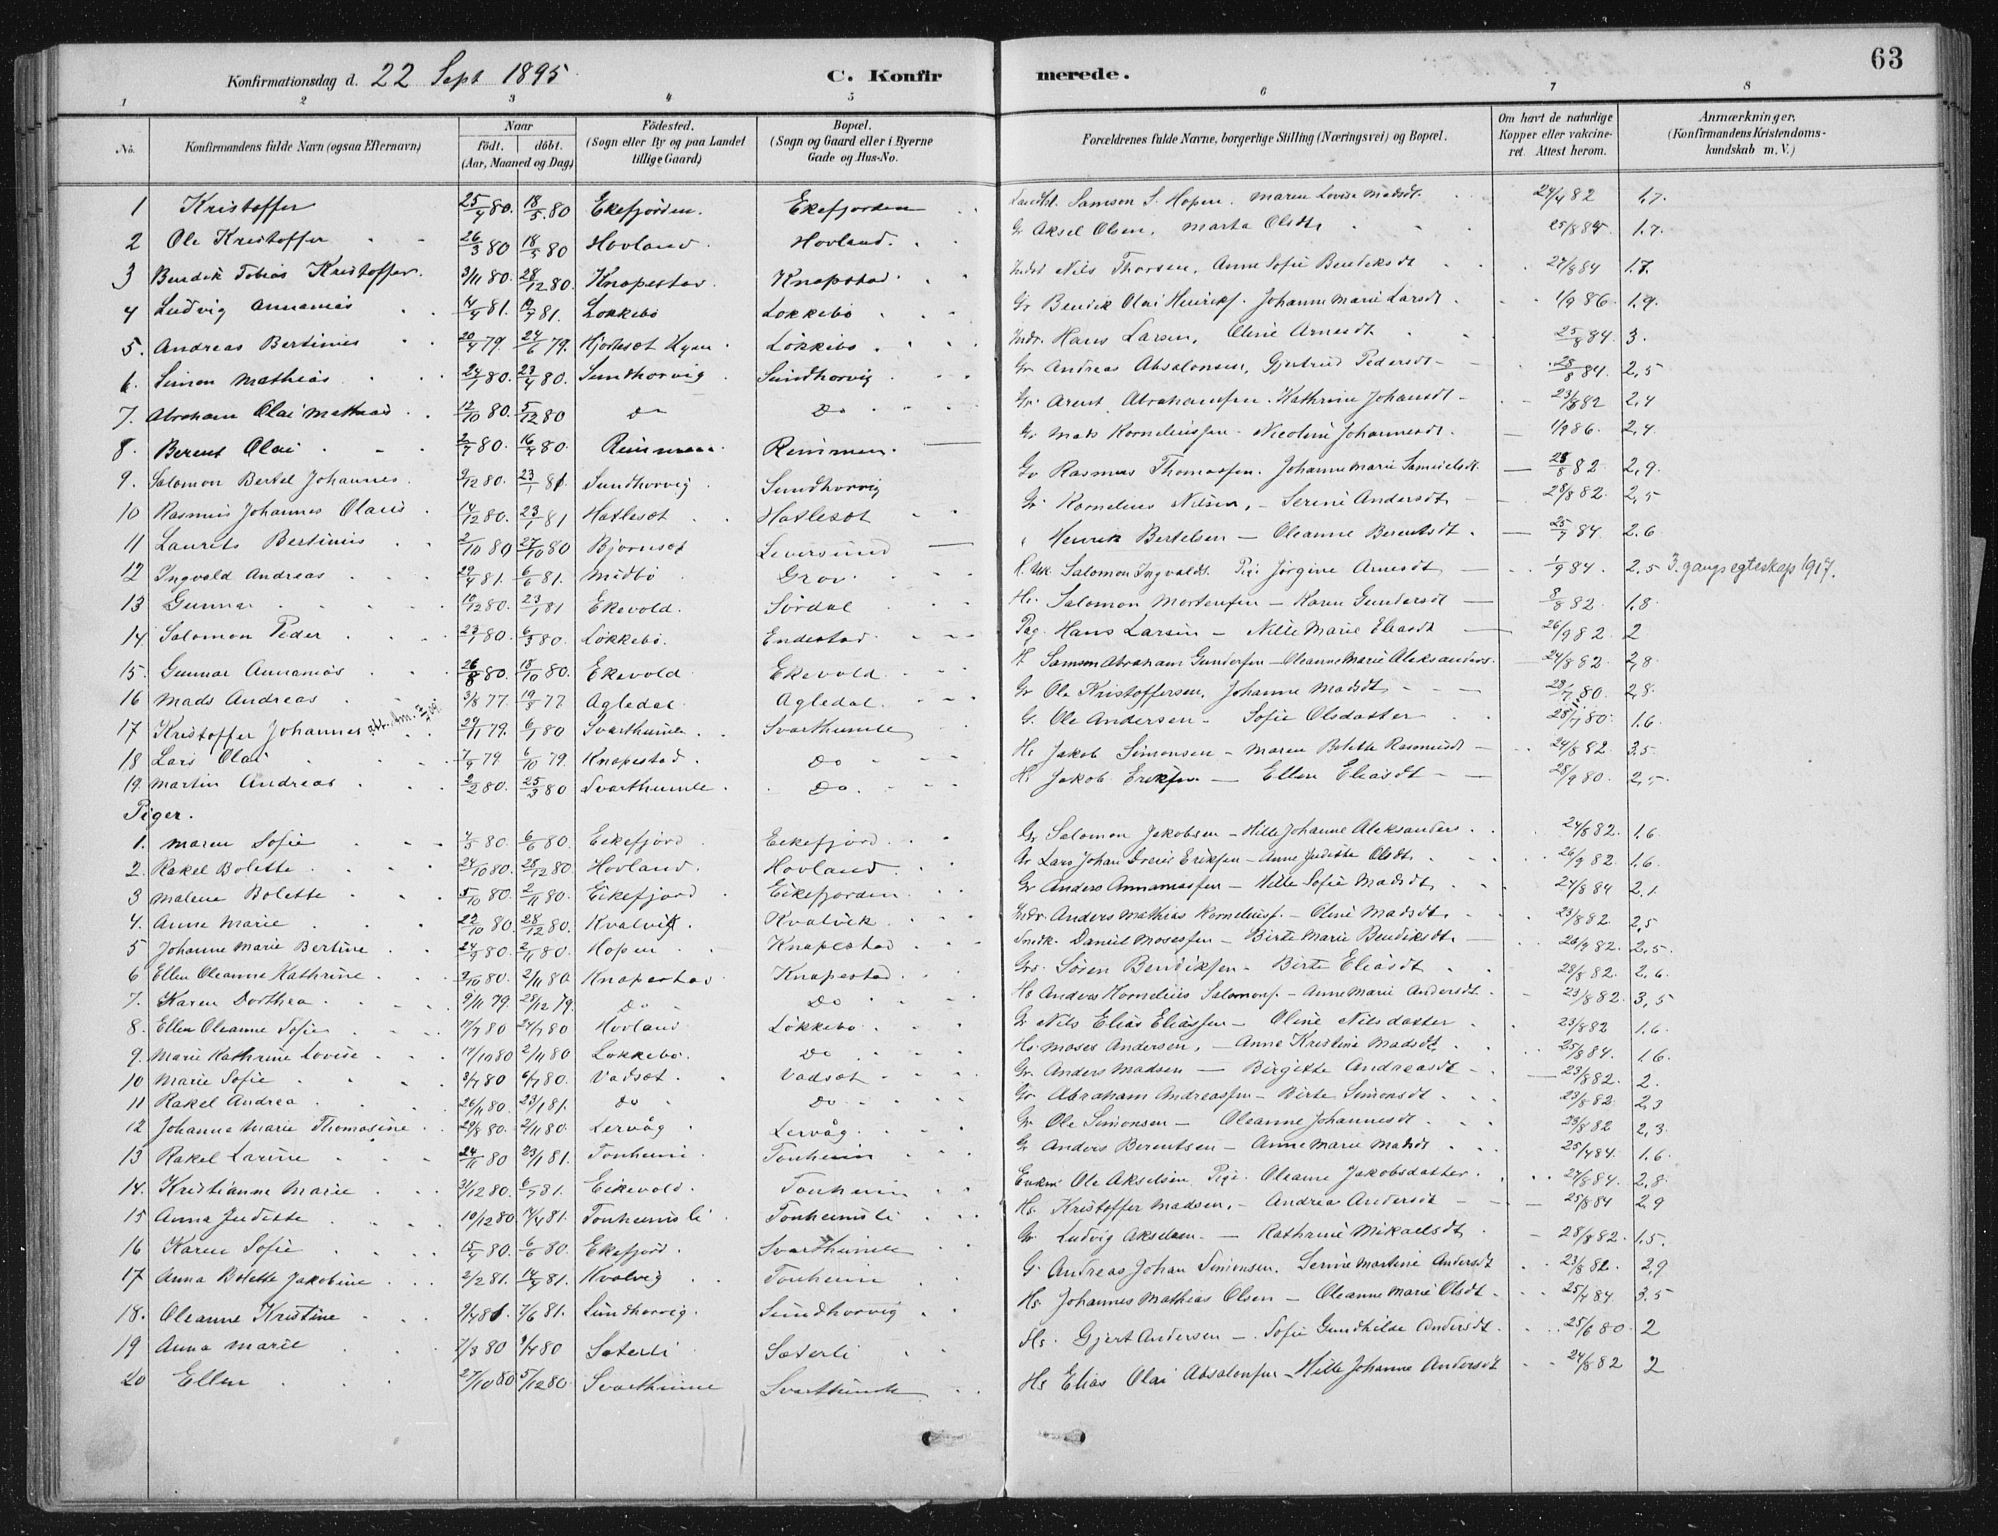 63
Konfirmationsdag d. 22 Sept 1895 C. Konfirmerede.
1 2 3 4 5 6 7 8
No. Konfirmandens fulde Navn (ogsaa Efternavn) Naar født. døbt. (Aar, Maaned og Dag) Fødested. (Sogn eller By og paa Landet tillige Gaard) Bopæl. (Sogn og Gaard eller i Byerne Gade og Hus-No. Forældrenes fulde Navne, borgerlige Stilling (Næringsvei) og Bopæl. Om havt de naturlige Kopper eller vakcineret. Attest herom. Anmærkninger. (Konfirmandens Kristendomskundskab m. V.)
1 Kristoffer 25/4 80. 18/5 80 Ekefjorden. Ekefjorden Samson S. Hopen. Maren Lovise Madsdt. 24/4 82 1.7.
2 Ole Kristoffer 26/3 80 18/5 80 Hovland. Hovland. Gr Aksel Olsen, Marta Olsdt 1.7.
3 Bendik Tobias Kristoffer. 3/11 80. 28/12 80. Knapestad Knapstad Indst Nils Thorsen, Anne Sofie Bendiksdt 27/8 84 1.7.
4 Ludvig Annanias 81. 81. Løkkebø Løkkebø Gr Bendik Olai Henriks. Johanne Marie Larsdt 1/9 86 1.9.
5. Andreas Bertinus 20/4 79. 24/6 79. Løkkebø Indr. Hans Larsen, Oline Arnesdt 25/8 84. 3.
6. Simon Mathias 24/1 80. 23/4 80. Sundhorvig Sundhorvig Gr Andreas Absalonsen, Gjertrud Pedersdt 28/8 84. 2,5
7. Abraham Olai Mathias 12/10 80. 5/12 80 Do Do Gr Arent Abrahamsen. Kathrine Johansdt 23/8 82 2,4
8. Berent Olai 2/7 80. 16/4 80. Reinmen Gr Mads Korneliussen - Nicoline Johannesdt 1/9 86. 2,4.
9. Salomon Bertel Johannes 9/12 80. 23/1 81 Sundhorvig. Sundhorvig Gr Rasmus Thomassen. Johanne Marie Samuelsdt 28/8 82. 2,9.
10 Rasmus Johannes Olaus 14/12 80. 23/1 81 Hatleset Hatleset Gr Kornelius Nilsen, - Serine Andersdt 28/8 82. 2,5
11 Laurits Bertinus 2/10 80 27/10 80 Bjørnset Leversund Henrik Bertelsen - Oleanne Berentsdt. 25/7 84. 2.6
12 Ingvald Andreas 29/4 81. 6/6 81. Midbø Grov. Salomon Ingvaldt. Pige Jørgine Arnesdt 1/9 84. 2.5 3. gangs egteskap 1917.
13 Gunnar 10/12 80. 23/1 81 Ekevold. Sørdal Hs. Salomon Mortensen - Karen Gundersdt 8/8 82. 1.8.
14. Salomon Peder 23/1 80. 6/5 80. Løkkebø. Endestad. Hans Larsen - Nille Marie Eliasdt 26/9 82. 2
15. Gunnar Annanias 26/8 80. 18/10 80. Ekevold Ekevold. H. Samson Abraham Gundersen - Oleanne Marie Aleksanders. 24/8 82. 2,8.
16 Mads Andreas 3/8 77. 19/8 77 Agledal Agledal Gr Ole Kristoffersen, Johanne Madsdt 80. 2,8.
17 Kristoffer Johannes 29/11 79. 6/1 80 Svarthumle Svarthumle G. Ole Andersen - Sofie Olsdatter 28/7 80. 1.6.
18 Lars Olai 7/9 79. 6/10 79. Knapestad. Do Hs. Jakob Simonsen - Maren Bolette Rasmusdt 24/8 82. 3.5
19. Martin Andreas 2/2 80. 25/3 80 Svarthumle Do. H. Jakob Eriksen - Ellen Eliasdt 28/9 80. 2,5.
Piger.
1. Maren Sofie 4/5 80. 6/6 80. Eikefjord Eekefjord Gr Salomon Jakobsen - Hille Johanne Aleksanders. 24/8 82. 1.6.
2. Rakel Bolette 24/10 80. 28/12 80. Hovland Hovland Gr Lars Johan Eriksen - Anne Juditte Olsdt 26/9 82. 1.6.
3 Malene Bolette 5/10 80. 2/11 80. Eikefjord Eikefjorden Gr Anders Annaniassen - Hille Sofie Madsdt 24/8 84 2.1.
4. Anne Marie 22/10 80. 28/12 80. Kvalvik. Kvalvik Indr. Anders Mathias Korneliuss. - Oline Madsdt. 23/8 82. 2,5
5 Johanne Marie Bertine 24/9 80. 2/11 80. Hopen Knapestad Daniel Mosessen - Birte Marie Bendiksdt. 26/9 82. 2,5.
6 Ellen Oleanne Kathrine 9/10 80. 2/11 80. Knapestad Knapestad Grs. Søren Bendiksen - Birte Eliasdt 28/8 82. 2,6.
7. Karen Dorthea 9/11 79. 28/12 79. Do Do Hs Anders Kornelius Salomons. - Anne Marie Andersdt 23/8 82. 3,5
8. Ellen Oleanne Sofie 17/7 80 24/7 80 Hovland Løkkebø Gr Nils Elias Eliassen - Oline Nilsdatter 23/8 82 1.6.
9. Marie Kathrine Lovise 17/10 80 2/11 80. Løkkebø. Do Hs. Moses Andersen, - Anne Kristine Madsdt 25/8 84. 1.6.
10 Marie Sofie 3/7 80 6/7 80. Vadset. Vadset Gr. Anders Madsen - Birgitte Andreasdt 23/8 82. 2.
11 Rakel Andrea 26/11 80. 23/1 81. Do Do Gr Abraham Andreassen - Birte Simonsdt 23/8 82. 2,3
12 Johanne Marie Thomasine 29/8 80. 2/11 80. Lervåg Lervåg Gr Ole Simonsen - Oleanne Johannesdt 23/8 82 2,3.
13 Rakel Larine 24/11 80 23/1 81. Tonheim Tonheim G Anders Berentsen - Anne Marie Madsdt 25/4 84. 1.6.
14. Kristianne Marie 31/12 80. 6/7 81. Eikevold. Tonheim Enkm. Ole Akselsen. Pige. Oleanne Jakobsdatter. 27/8 84. 2,8.
15 Anna Juditte 19/12 80. 7/4 81. Tonheimsli Tonheimsli Hs. Kristoffer Madsen, - Andrea Andersdt 25/8 84 2,9
16 Karen Sofie 15/4 80. 6/6 80. Ekefjord. Svarthumle Gr. Ludvig Akselsen - Kathrine Mikaelsdt 28/8 82. 1.5.
17 Anna Bolette Jakobine 2/2 81. 14/4 81. Kvalvig Tonheim G Andreas Johan Simonsen. Serine Martine Andersdt 23/8 82. 2,9
18. Oleanne Kristine 7/6 81. Sundhorvig. Sundhorvig Hs. Johannes Mathias Olsen - Oleanne Marie Olsdt 25/4 84. 3.5
19 Anna Marie 7/3 80 80 Sæterli Sæterli Hs. Gjert Andersen - Sofie Gundhilde Andersdt. 25/6 80. 2
20 Ellen 27/10 80 5/12 80. Svarthumle Svarthumle Hs Elias Olai Absalonsen - Hille Johanne Andersdt 24/8 82 2